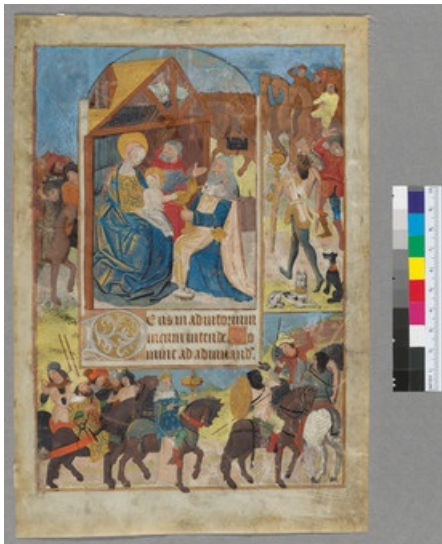 Deus in adiutorium
meum intende. Do
mine ad adiuuand.